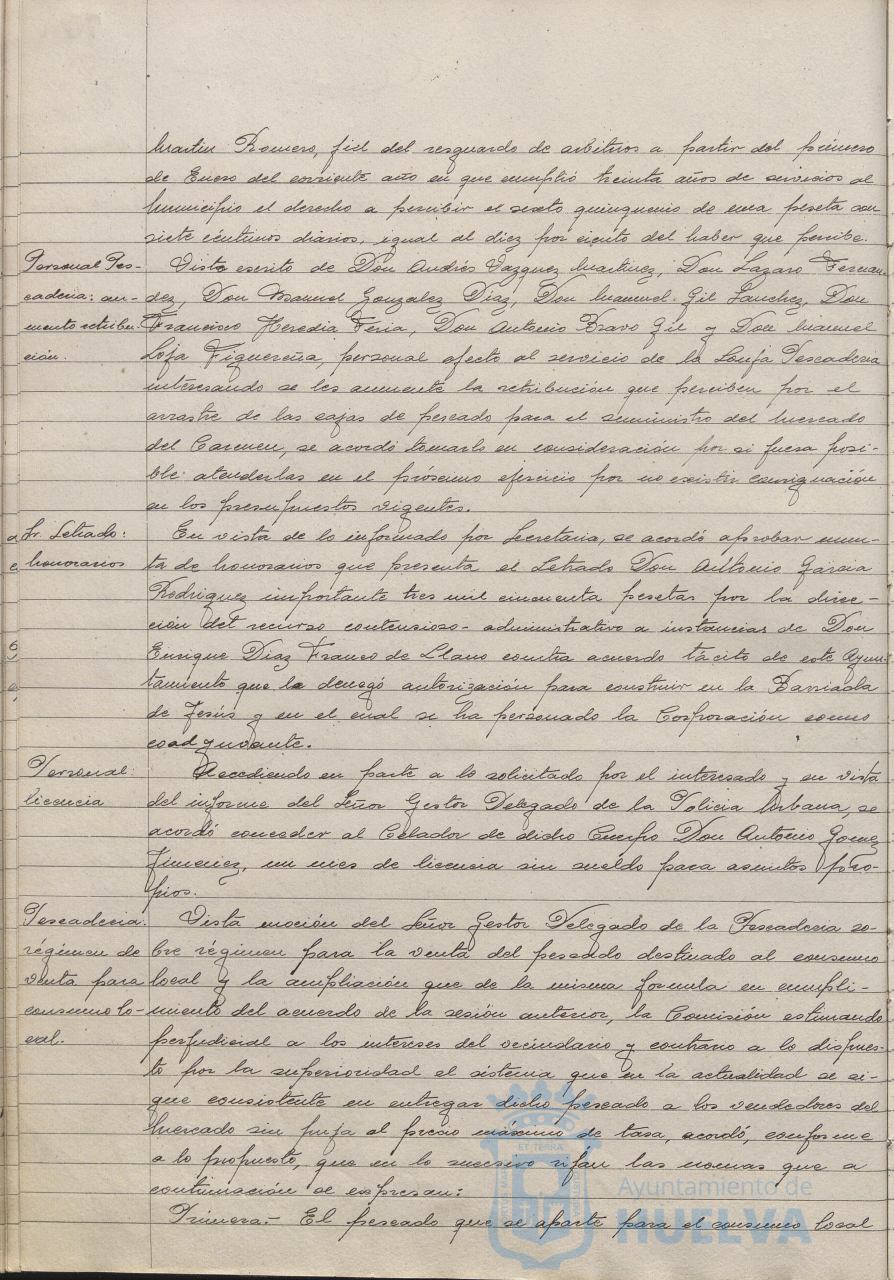 Martin Romero, fiel del resguardo de arbitrios a partir del primero
de Enero del corriente año en que cumplió treinta años de servicios al
Municipio el derecho a percibir el sexto quinquenio de una peseta con
siete céntimos diarios, igual al diez por ciento del haber que percibe.
Personal Pes-
cadería: au-
mento retribu-
ción.
Visto escrito de Don Andrés Vazquez Martinez, Don Lazaro Fernan-
dez, Don Manuel Gonzalez Diaz, Don Manuel Gil Sanchez, Don
Francisco Heredia Feria, Don Antonio Bravo Gil y Don Manuel
Loja Figuereña, personal afecto al servicio de la Lonja Pescaderia
interesando se les aumente la retribución que perciben por el
arrastre de las cajas de pescado para el suministro del Mercado
del Carmen, se acordó tomarlo en consideración por si fuera posi-
ble atenderlas en el próximo ejercicio por no existir consignación
en los presupuestos vigentes.
Sr. Letrado:
honorarios
En vista de lo informado por Secretaria, se acordó aprobar minu-
ta de honorarios que presenta el Letrado Don Antonio Garcia
Rodriguez importante tres mil cincuenta pesetas por la direc-
ción del recurso contencioso-administrativo a instancias de Don
Enrique Diaz Franco de Llano contra acuerdo tácito de este Ayun-
tamiento que le denegó autorización para construir en la Barriada
de Jesús y en el cual se ha personado la Corporación como
coadyuvante.
Personal:
licencia
Accediendo en parte a lo solicitado por el interesado y en vista
del informe del Señor Gestor Delegado de la Policia Urbana, se
acordó conceder al Celador de dicho Cuerpo Don Antonio Gomez
Jimenez, un mes de licencia sin sueldo para asuntos pro-
pios.
Pescaderia:
régimen de
venta para
consumo lo-
cal.
Vista moción del Señor Gestor Delegado de la Pescaderia so-
bre régimen para la venta del pescado destinado al consumo
local y la ampliación que de la misma formula en cumpli-
miento del acuerdo de la sesión anterior, la Comisión estimando
perjudicial a los intereses del vecindario y contrario a lo dispues-
to por la superioridad el sistema que en la actualidad se si-
gue consistente en entregar dicho pescado a los vendedores del
Mercado sin puja al precio máximo de tasa, acordó, conforme
a lo propuesto, que en lo sucesivo rijan las normas que a
continuación se expresan:
Primera:- El pescado que se aparte para el consumo local
Ayuntamiento de
HUELVA